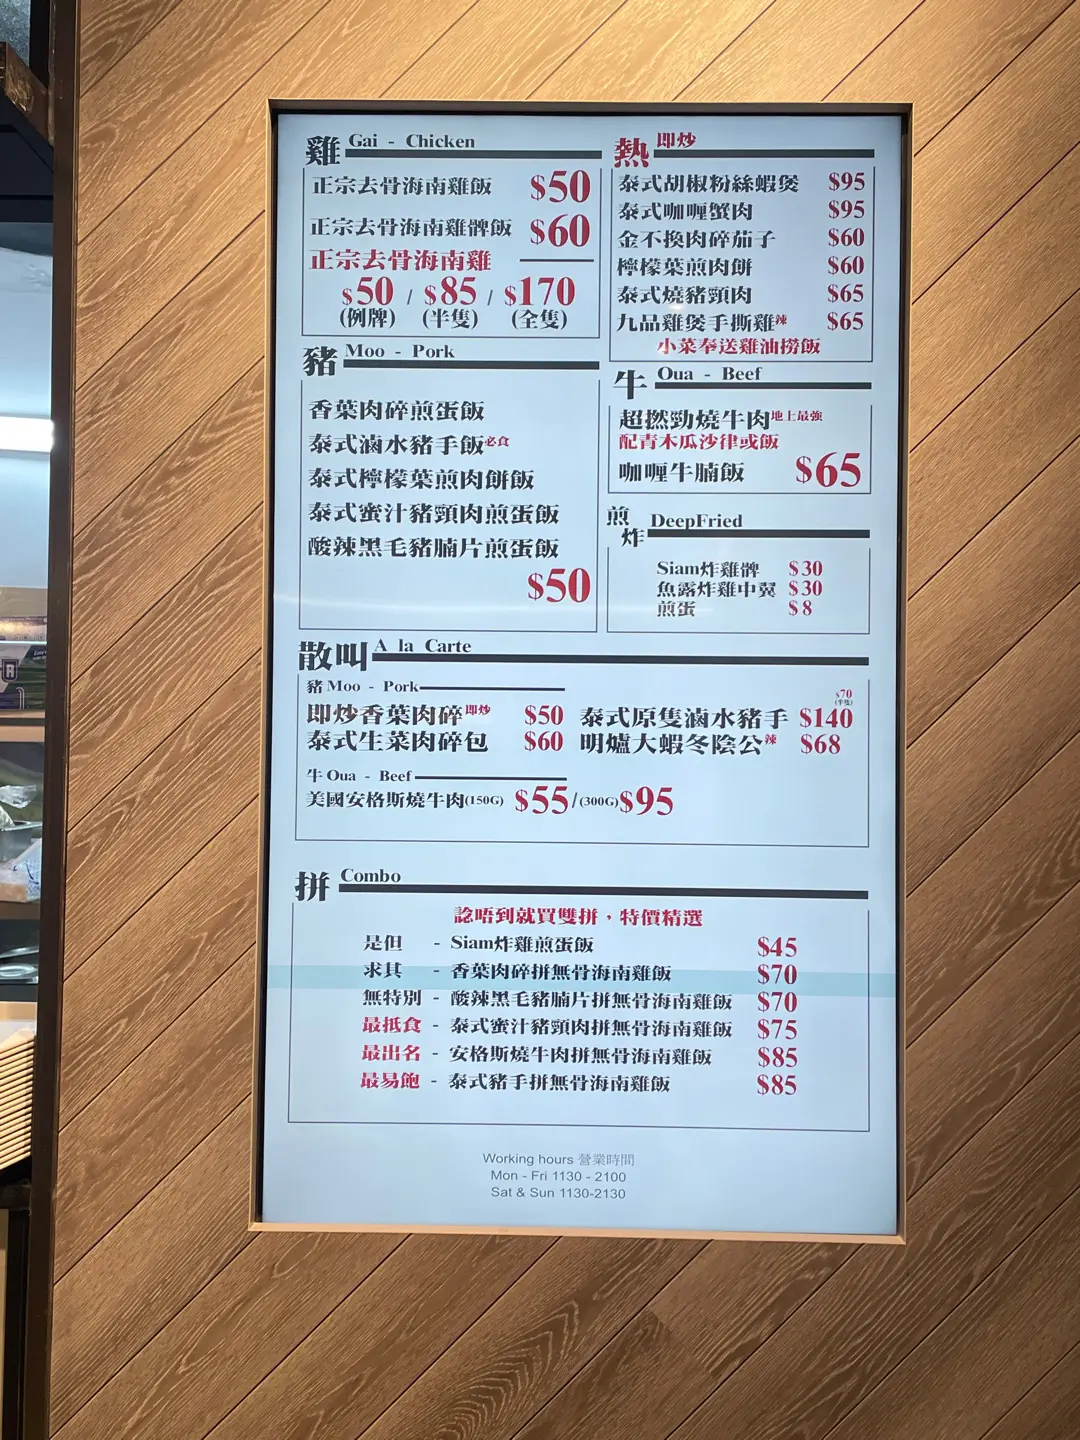 雞 Gai - Chicken
正宗去骨海南雞飯 $50
正宗去骨海南雞髀飯 $60
正宗去骨海南雞
$50 / $85 / $170
(例牌) (半隻) (全隻)
熱 即炒
泰式胡椒粉絲蝦煲 $95
泰式咖喱蟹肉 $95
金不換肉碎茄子 $60
檸檬葉煎肉餅 $60
泰式燒豬頸肉 $65
九品雞煲手撕雞辣 $65
小菜奉送雞油撈飯
豬 Moo - Pork
香葉肉碎煎蛋飯
泰式滷水豬手飯必食
泰式檸檬葉煎肉餅飯
泰式蜜汁豬頸肉煎蛋飯
酸辣黑毛豬腩片煎蛋飯
$50
牛 Oua - Beef
超撚勁燒牛肉地上最強
配青木瓜沙律或飯
咖喱牛腩飯 $65
煎炸 DeepFried
Siam炸雞髀 $30
魚露炸雞中翼 $30
煎蛋 $8
散叫 A la Carte
豬 Moo - Pork
即炒香葉肉碎即炒 $50
泰式生菜肉碎包 $60
$70
(半隻)
泰式原隻滷水豬手 $140
明爐大蝦冬陰公辣 $68
牛 Oua - Beef
美國安格斯燒牛肉(150G) $55/(300G)$95
拼 Combo
諗唔到就買雙拼，特價精選
是但 - Siam炸雞煎蛋飯 $45
求其 - 香葉肉碎拼無骨海南雞飯 $70
無特別 - 酸辣黑毛豬腩片拼無骨海南雞飯 $70
最抵食 - 泰式蜜汁豬頸肉拼無骨海南雞飯 $75
最出名 - 安格斯燒牛肉拼無骨海南雞飯 $85
最易飽 - 泰式豬手拼無骨海南雞飯 $85
Working hours 營業時間
Mon - Fri 1130 - 2100
Sat & Sun 1130-2130